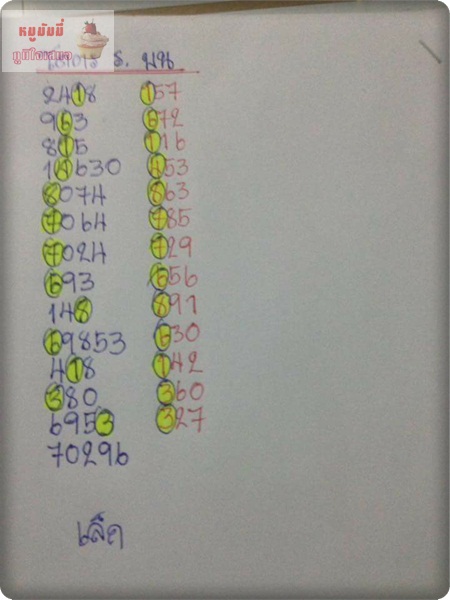 หมูมัมมี่
ธ. บน
2418 157
963 672
815 116
14630 453
8074 863
7064 785
7024 729
693 656
148 891
69853 630
418 142
380 360
6953 327
70296
เล็ด